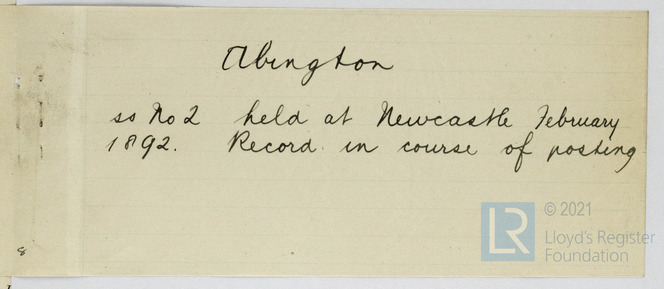 Abington
ss No 2 held at Newcastle February
1892. Record in course of posting
8
LR
© 2021
Lloyd's Register
Foundation